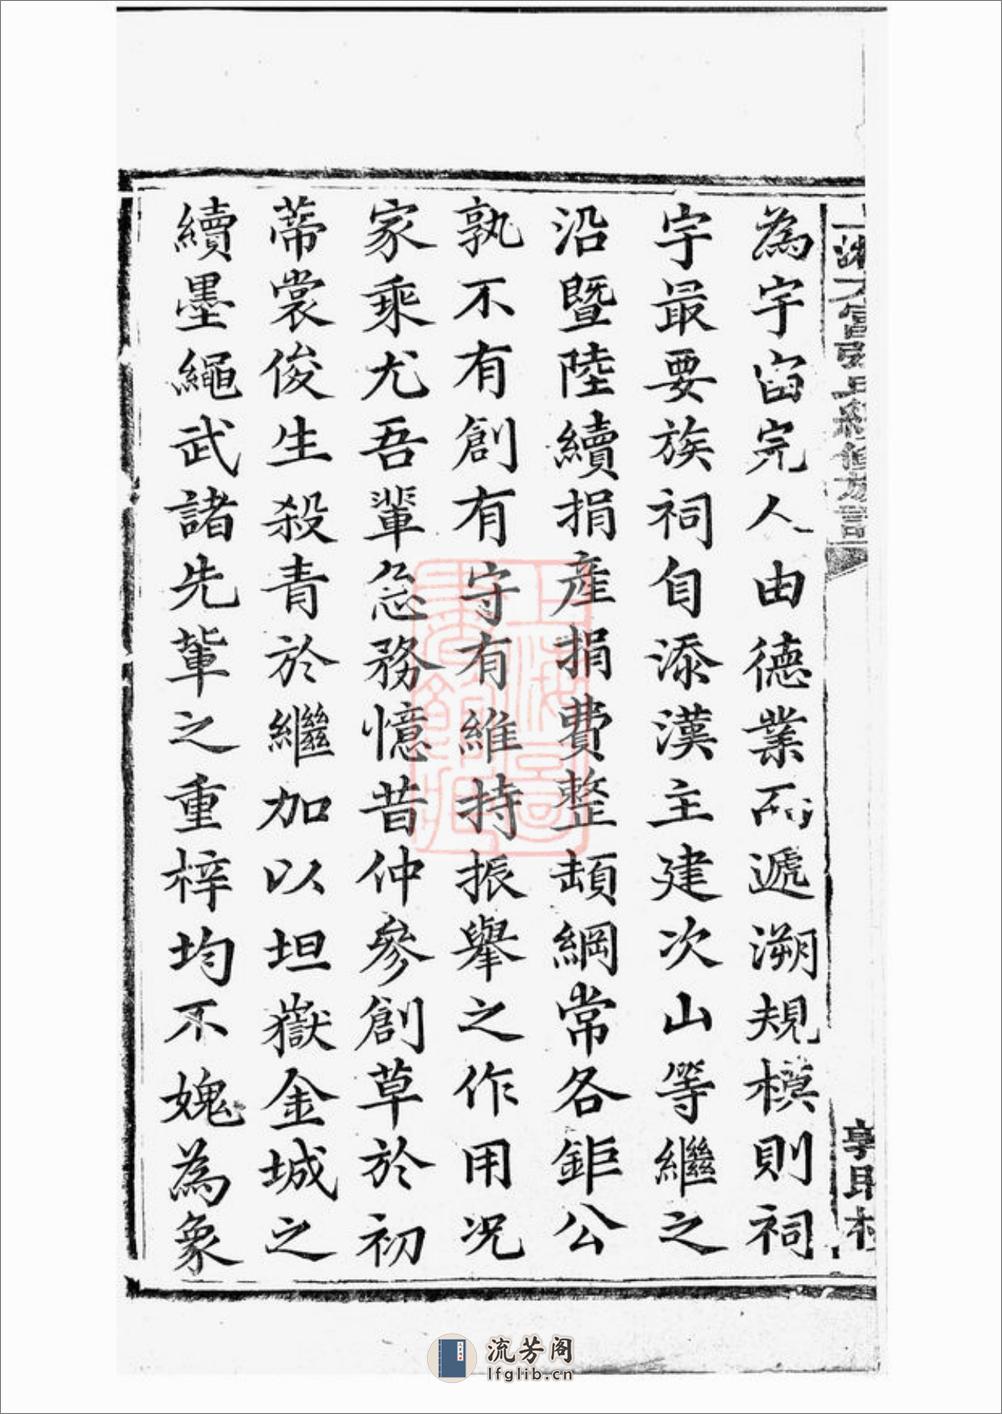 為宇宙完人由德業而遞溯規模則祠
宇最要族祠自添漢主建次山等繼之
沿暨陸續捐產捐費整頓綱常各鉅公
孰不有創有守有維持振舉之作用況
家乘尤吾輩急務憶昔仲參創草於初
蒂裳俊生殺青於繼加以坦嶽金城之
續墨繩武諸先輩之重梓均不媿為象
上海圖書館藏
流芳阁
lfglib.cn